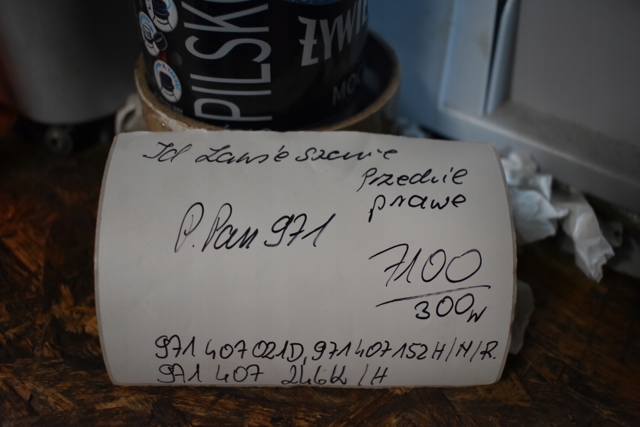 PILSKO
ŻYWIE
MOC
Id Zawieszenie
Przednie
prawe
P. Pan 971
7100
300w
971 407 021D, 971 407 152H/N/R.
971 407 246K/H